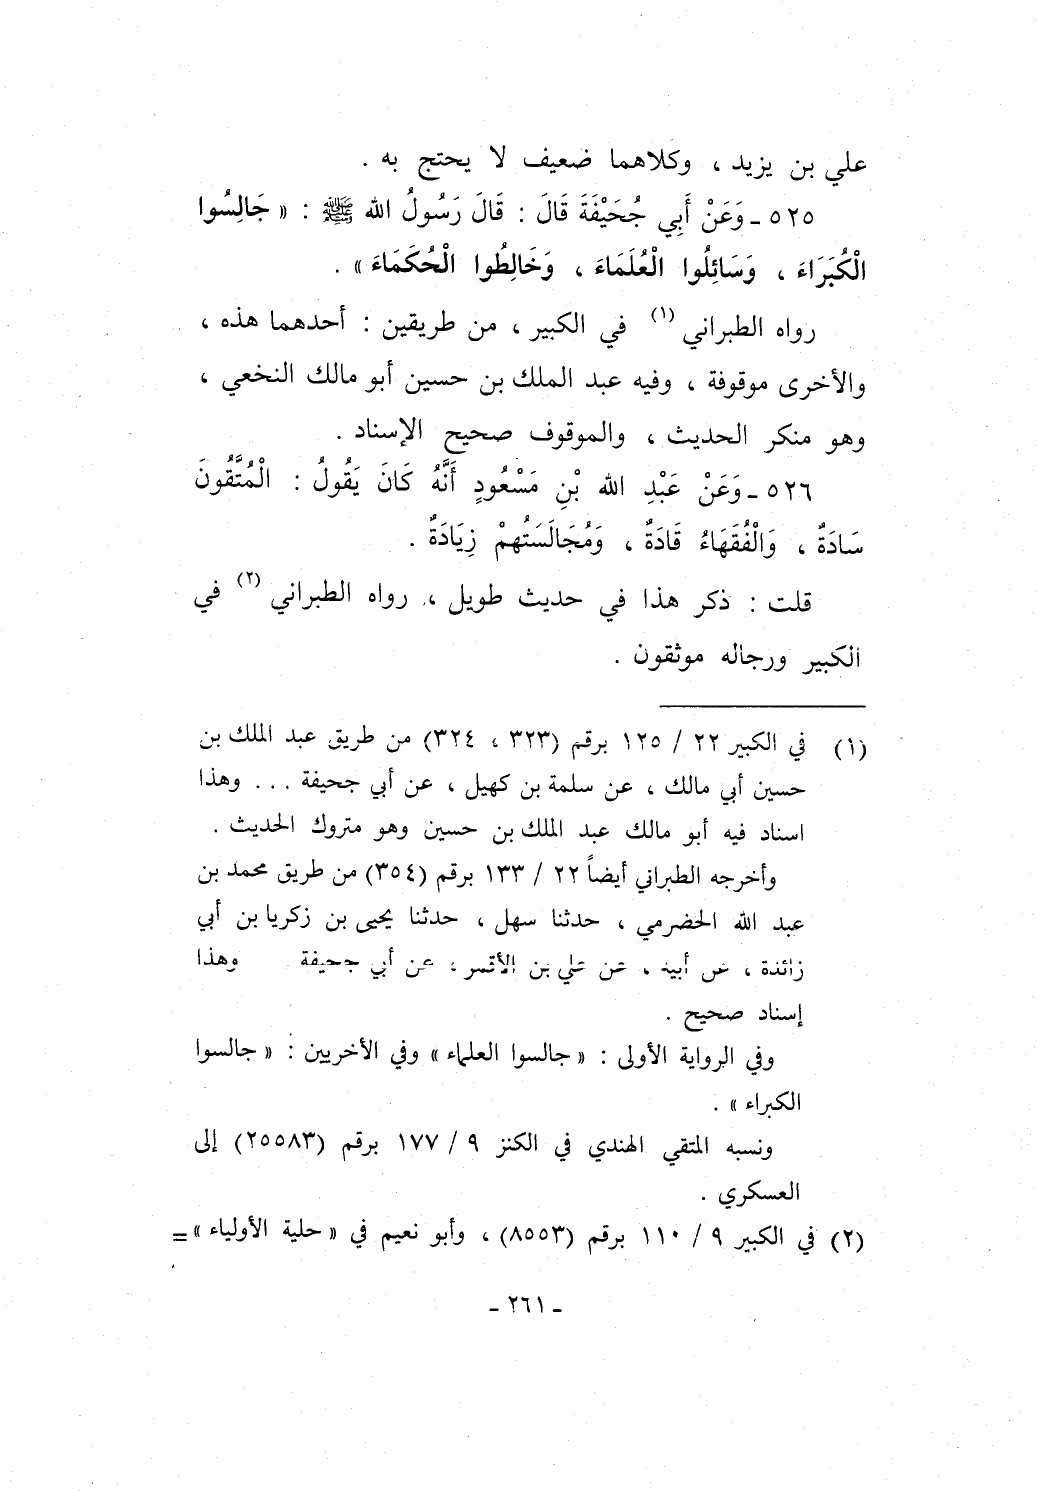 علي بن يزيد ، وكلاهما ضعيف لا يحتج به .
٥٢٥ ـ وَعَنْ أَبِي جُحَيْفَةَ قَالَ : قَالَ رَسُولُ الله ﷺ : « جَالِسُوا
الْكُبَرَاءَ ، وَسَائِلُوا الْعُلَمَاءَ ، وَخَالِطُوا الْحُكَمَاءَ » .
رواه الطبراني (١) في الكبير ، من طريقين : أحدهما هذه ،
والأخرى موقوفة ، وفيه عبد الملك بن حسين أبو مالك النخعي ،
وهو منكر الحديث ، والموقوف صحيح الإسناد .
٥٢٦ ـ وَعَنْ عَبْدِ الله بْنِ مَسْعُودٍ أَنَّهُ كَانَ يَقُولُ : الْمُتَّقُونَ
سَادَةٌ ، وَالْفُقَهَاءُ قَادَةٌ ، وَمُجَالَسَتُهمْ زِيَادَةٌ .
قلت : ذكر هذا في حديث طويل ، رواه الطبراني (٢) في
الكبير ورجاله موثقون .
(١) في الكبير ٢٢ / ١٢٥ برقم (٣٢٣ ، ٣٢٤) من طريق عبد الملك بن
حسين أبي مالك ، عن سلمة بن كهيل ، عن أبي جحيفة ... وهذا
اسناد فيه أبو مالك عبد الملك بن حسين وهو متروك الحديث .
وأخرجه الطبراني أيضاً ٢٢ / ١٣٣ برقم (٣٥٤) من طريق محمد بن
عبد الله الحضرمي ، حدثنا سهل ، حدثنا يحيى بن زكريا بن أبي
زائدة ، عن أبيه ، عن علي بن الأقمر ، عن أبي جحيفة وهذا
إسناد صحيح .
وفي الرواية الأولى : « جالسوا العلماء » وفي الأخريين : « جالسوا
الكبراء » .
ونسبه المتقي الهندي في الكنز ٩ / ١٧٧ برقم (٢٥٥٨٣) إلى
العسكري .
(٢) في الكبير ٩ / ١١٠ برقم (٨٥٥٣) ، وأبو نعيم في « حلية الأولياء » =
ـ ٢٦١ ـ